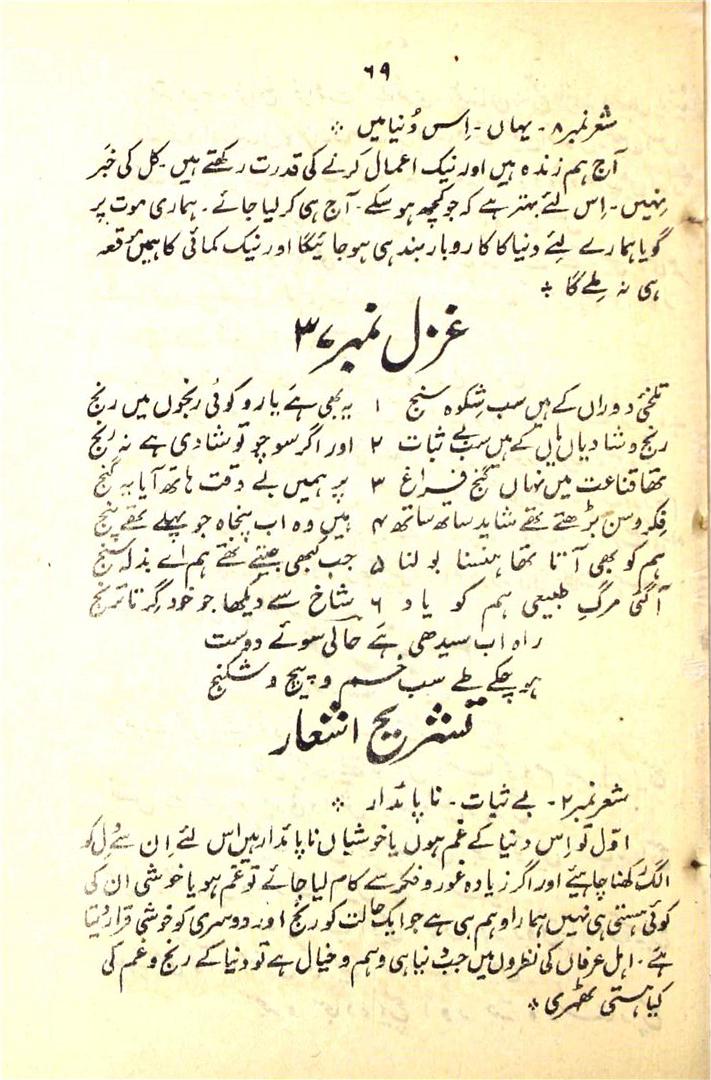 ۶۹
شعر نمبر ۸ - یہاں - اِس دُنیا میں ⁂
آج ہم زندہ ہیں اور نیک اعمال کرنے کی قدرت رکھتے ہیں - کل کی خبر
نہیں - اِس لئے بہتر ہے کہ جو کچھ ہو سکے - آج ہی کر لیا جائے - ہماری موت پر
گویا ہمارے لئے دنیا کا کاروبار بند ہی ہو جائیگا اور نیک کمائی کا ہمیں موقعہ
ہی نہ ملے گا ⁂
غزل نمبر ۳۷
تلخیٔ دوراں کے ہیں سب شکوہ سنج ۱ یہ بھی ہے یارو کوئی رنجوں میں رنج
رنج و شادیاں یاں کے ہیں سب بے ثبات ۲ اور اگر سوچو تو شادی ہے نہ رنج
تھا قناعت میں نہاں گنج فراغ ۳ پر ہمیں بے وقت ہاتھ آیا یہ گنج
فکر و سن بڑھتے تھے شاید ساتھ ساتھ ۴ ہیں وہ اب پنجاہ جو پہلے تھے پنج
ہم کو بھی آتا تھا ہنسنا بولنا ۵ جب کبھی جیتے تھے ہم اے بذلہ سنج
آ گئی مرگِ طبیعی ہم کو یاد ۶ شاخ سے دیکھا جو خود گرتا ترنج
راہ اب سیدھی ہے حالی سوئے دوست
ہو چکے طے سب خم و پیچ و شکنج
تشریح اشعار
شعر نمبر ۲ - بے ثبات - ناپائدار ⁂
اوّل تو اِس دنیا کے غم ہوں یا خوشیاں ناپائدار ہیں اس لئے اِن سے دِل کو
الگ رکھنا چاہیئے اور اگر زیادہ غور و فکر سے کام لیا جائے تو غم ہو یا خوشی ان کی
کوئی ہستی ہی نہیں ہمارا وہم ہی ہے جو ایک حالت کو رنج اور دوسری کو خوشی قرار دیتا
ہے - اہل عرفان کی نظروں میں جب دُنیا ہی وہم و خیال ہے تو دنیا کے رنج و غم کی
کیا ہستی ٹھہری ⁂